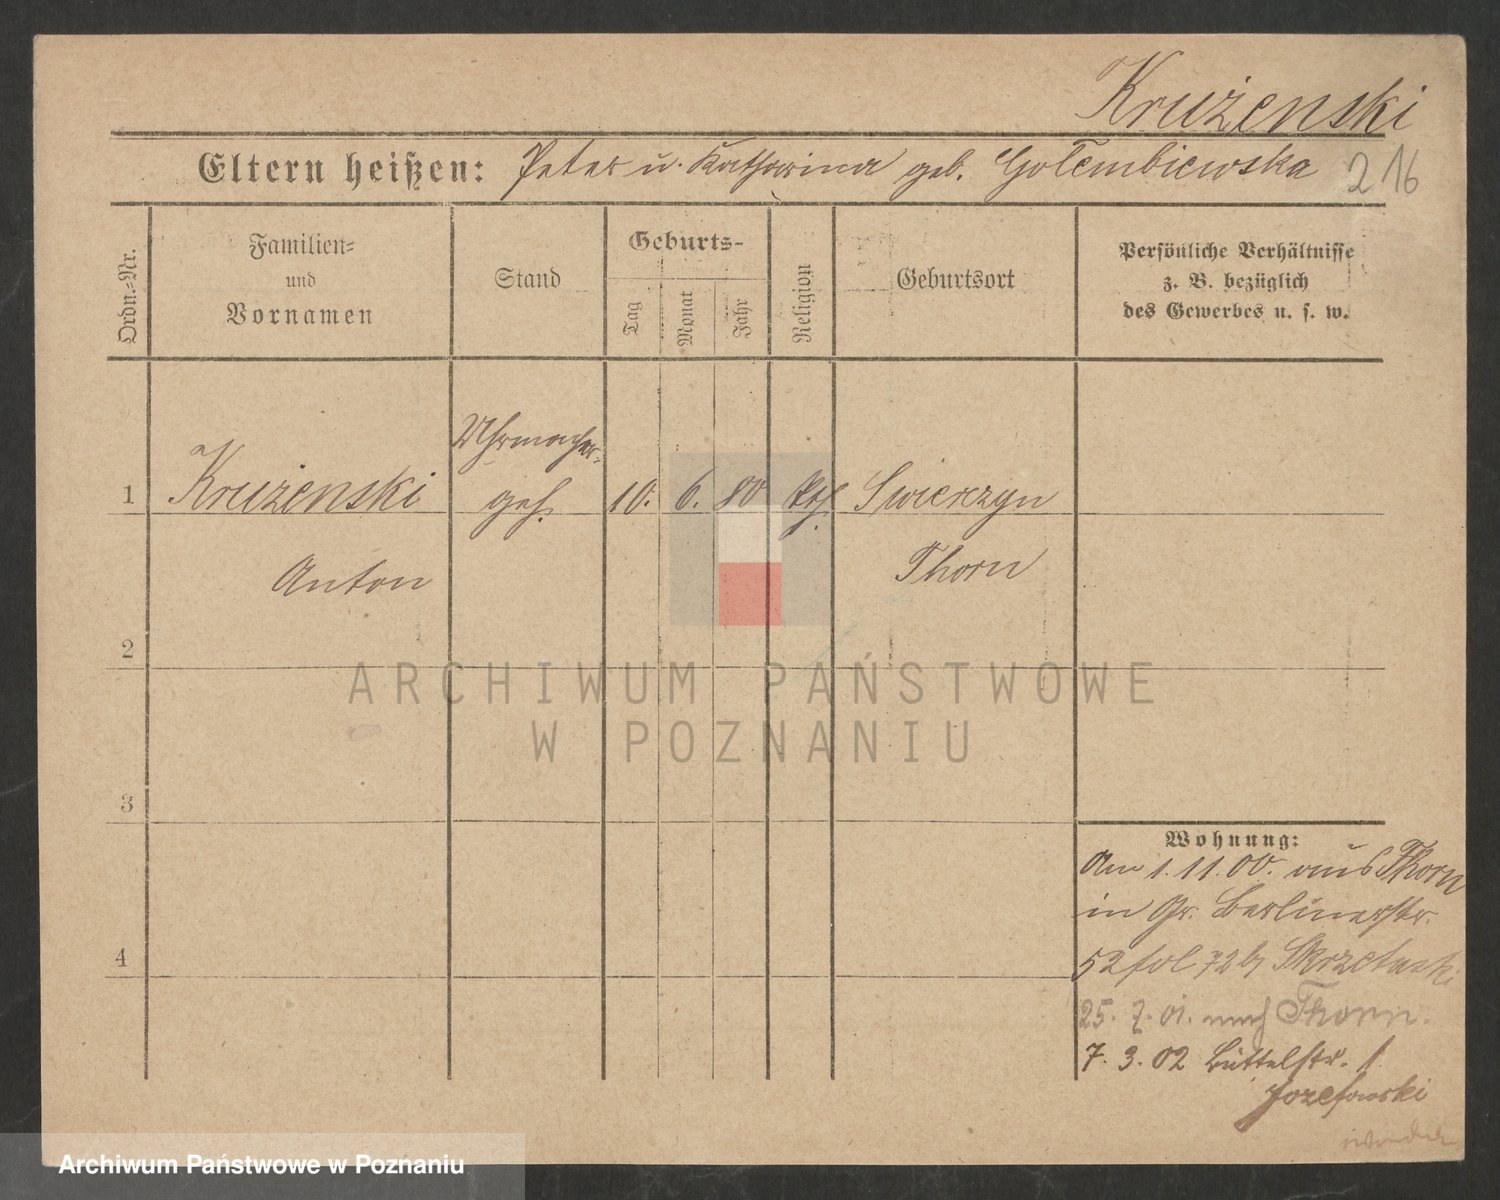 Krużenski
Eltern heißen: Peter u. Katharina geb. Golembiewska 216
Ordn.-Nr.
Familien-
und
Vornamen
Stand
Geburts-
Tag
Monat
Jahr
Religion
Geburtsort
Persönliche Verhältnisse
z. B. bezüglich
des Gewerbes u. s. w.
Uhrmacher-
1 Krużenski geh. 10. 6. 80 kth. Swierczyn
Anton Thorn
2
ARCHIWUM PAŃSTWOWE
W POZNANIU
3
Wohnung:
Am 1.11.00. aus Thorn
in Gr. Berlinerstr.
4
52 fol 72 b Skrzetuski
25. 7. 01. nach Thorn.
7. 3. 02 Büttelstr. 1
Jozefowski
Archiwum Państwowe w Poznaniu